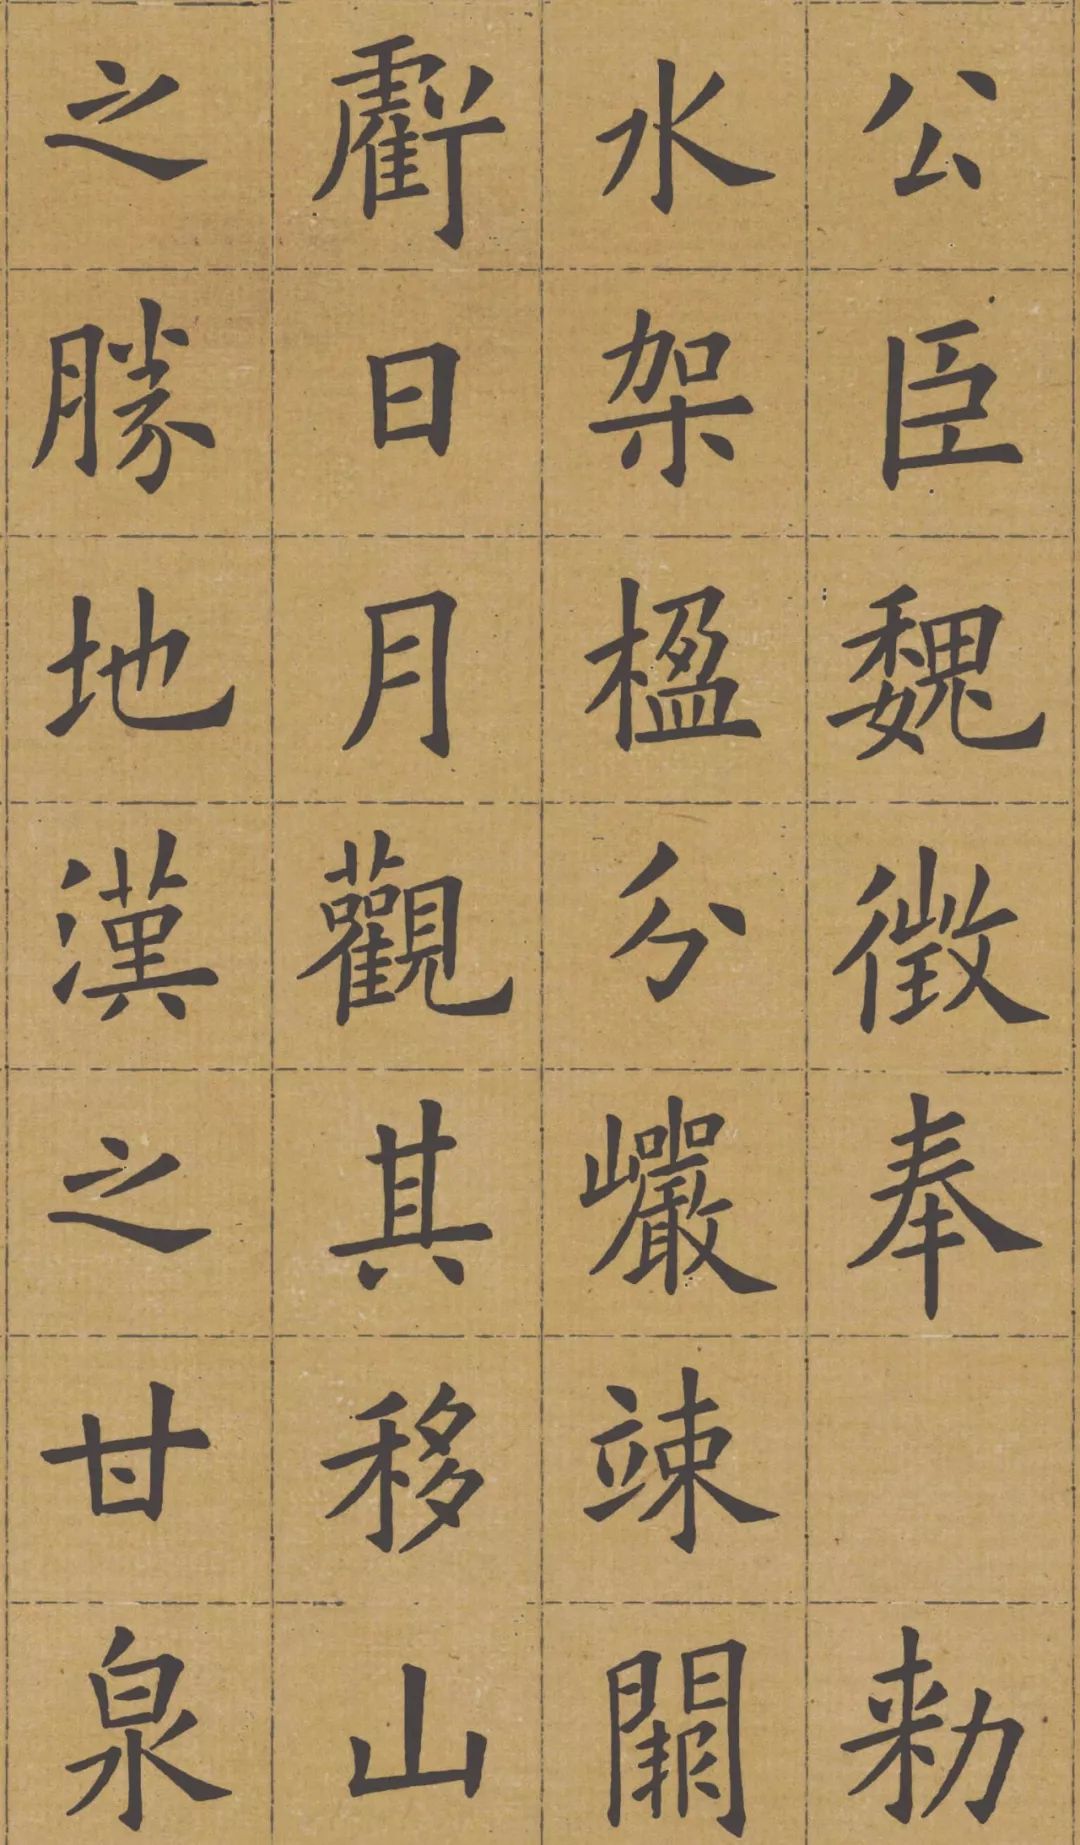 公臣魏徵奉 勑
水架楹分巖竦闕
虧日月觀其移山
之勝地漢之甘泉